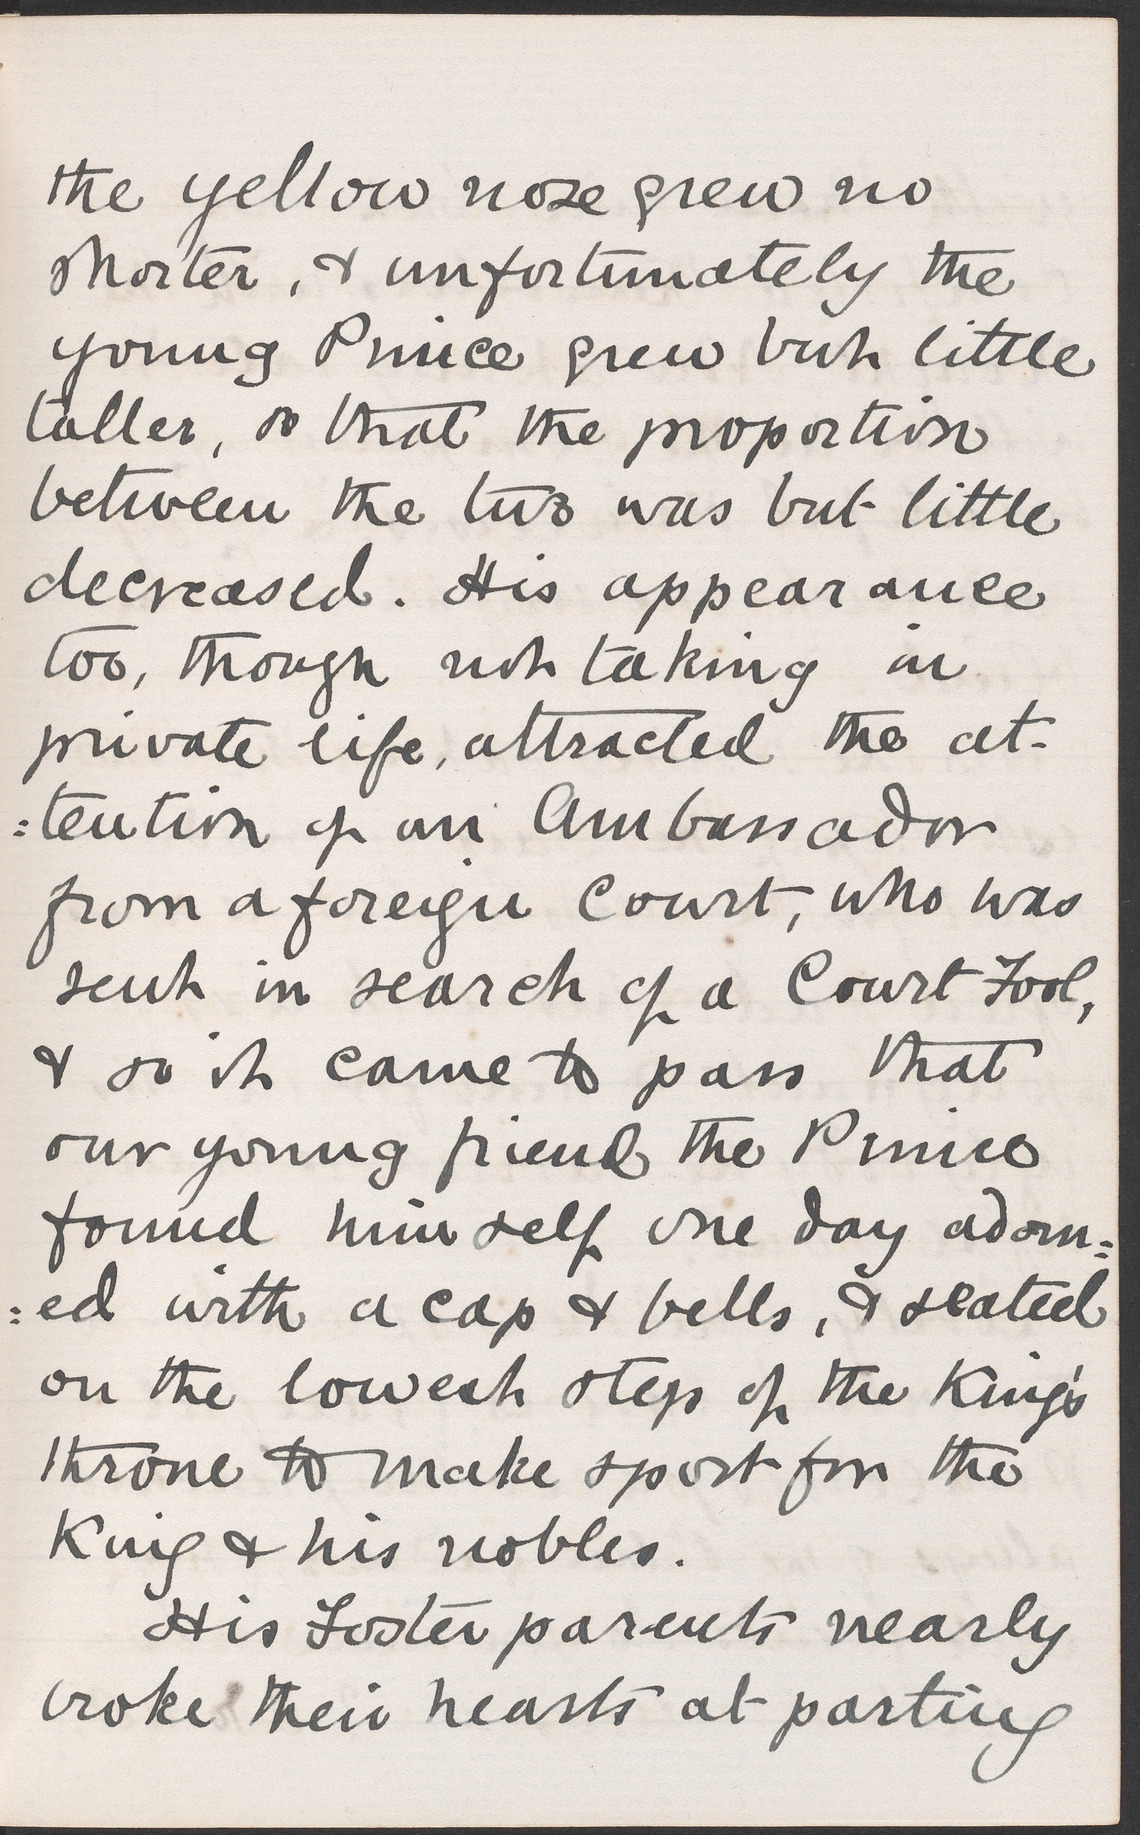 the yellow nose grew no
shorter, & unfortunately the
young Prince grew but little
taller, so that the proportion
between the two was but little
decreased. His appearance
too, though not taking in
private life, attracted the at-
:tention of an Ambassador
from a foreign Court, who was
sent in search of a Court Fool,
& so it came to pass that
our young friend the Prince
found himself one day adorn:
:ed with a cap & bells, & seated
on the lowest step of the King's
throne to make sport for the
King & his nobles.
His Foster parents nearly
broke their hearts at parting